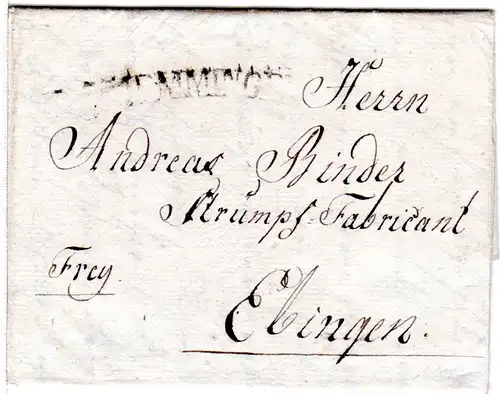 Herrn
Andreas Binder
Strumpf-Fabricant
Frey.
Ebingen.